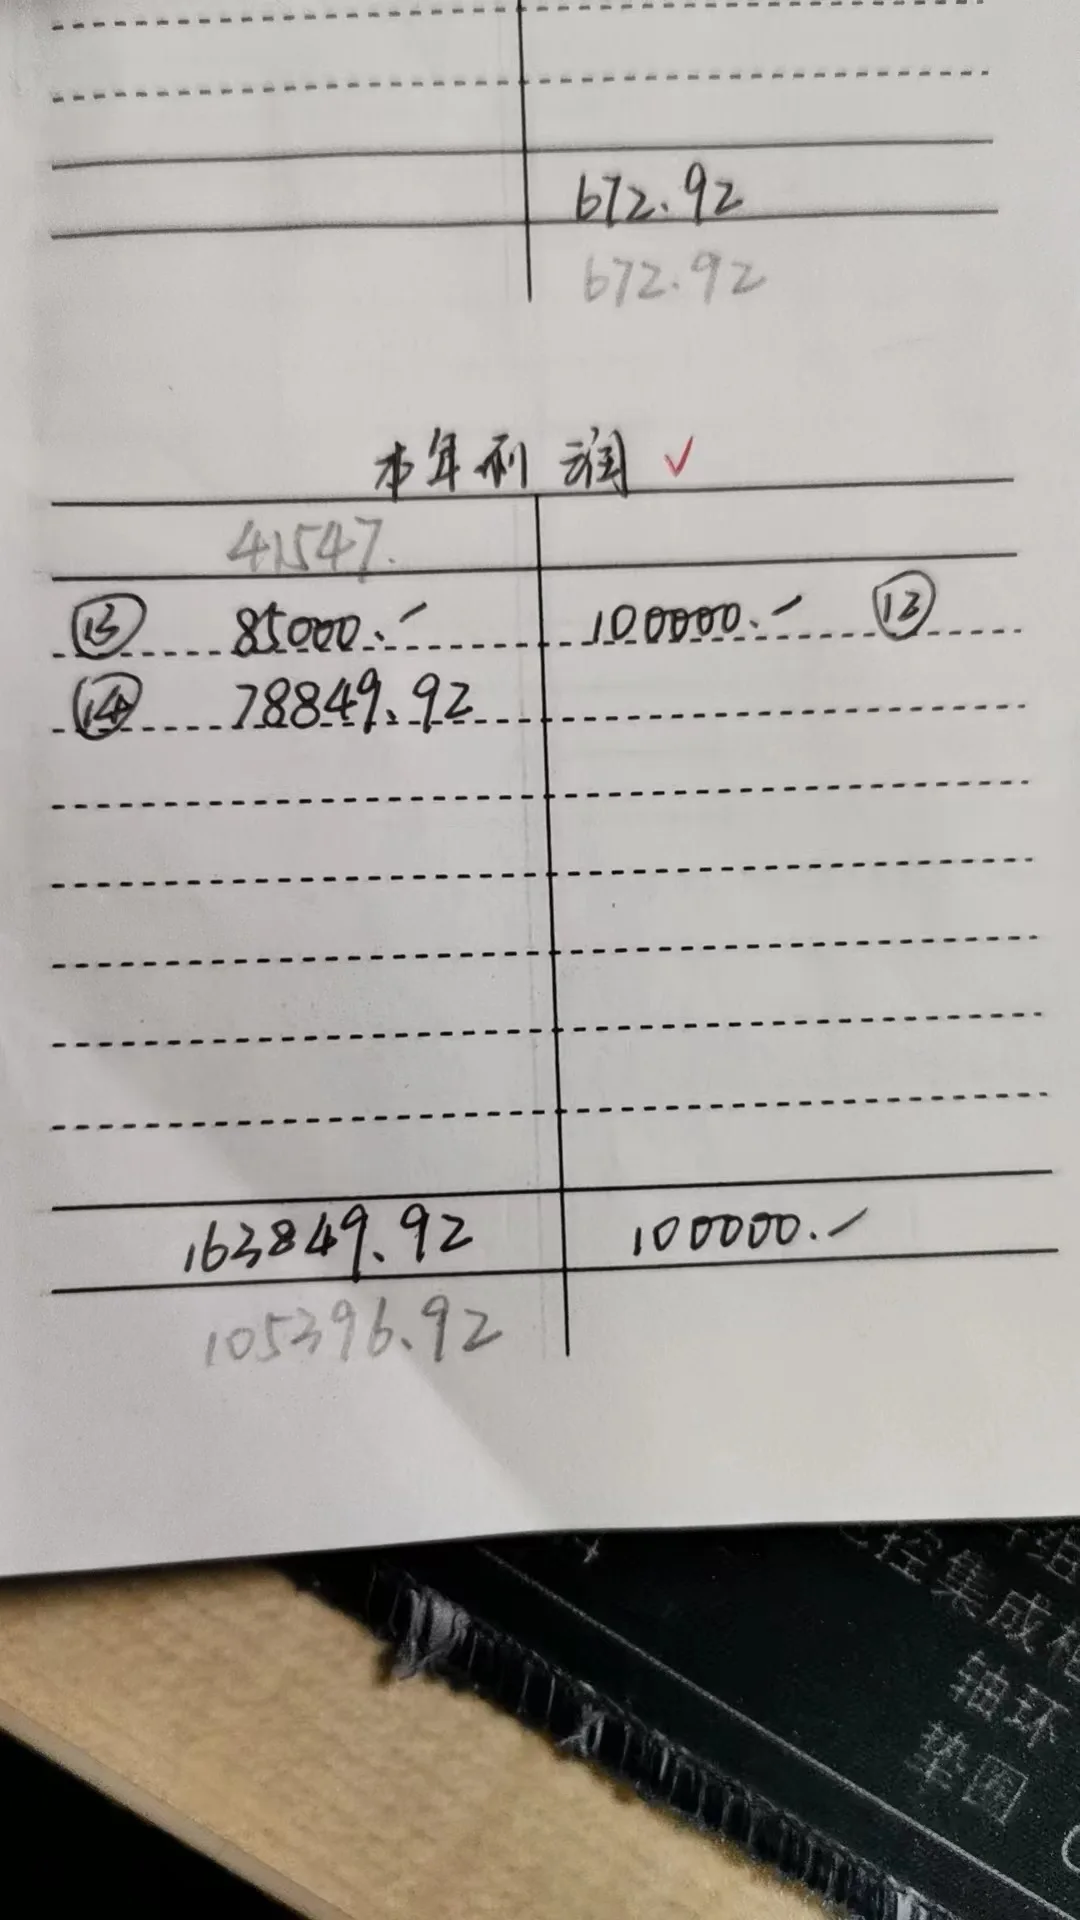 672.92
672.92
本年利润 ✓
41547.
⑬ 85000.- 100000.- ⑫
⑭ 78849.92
163849.92 100000.-
105396.92
控集成柜
轴环
垫圈